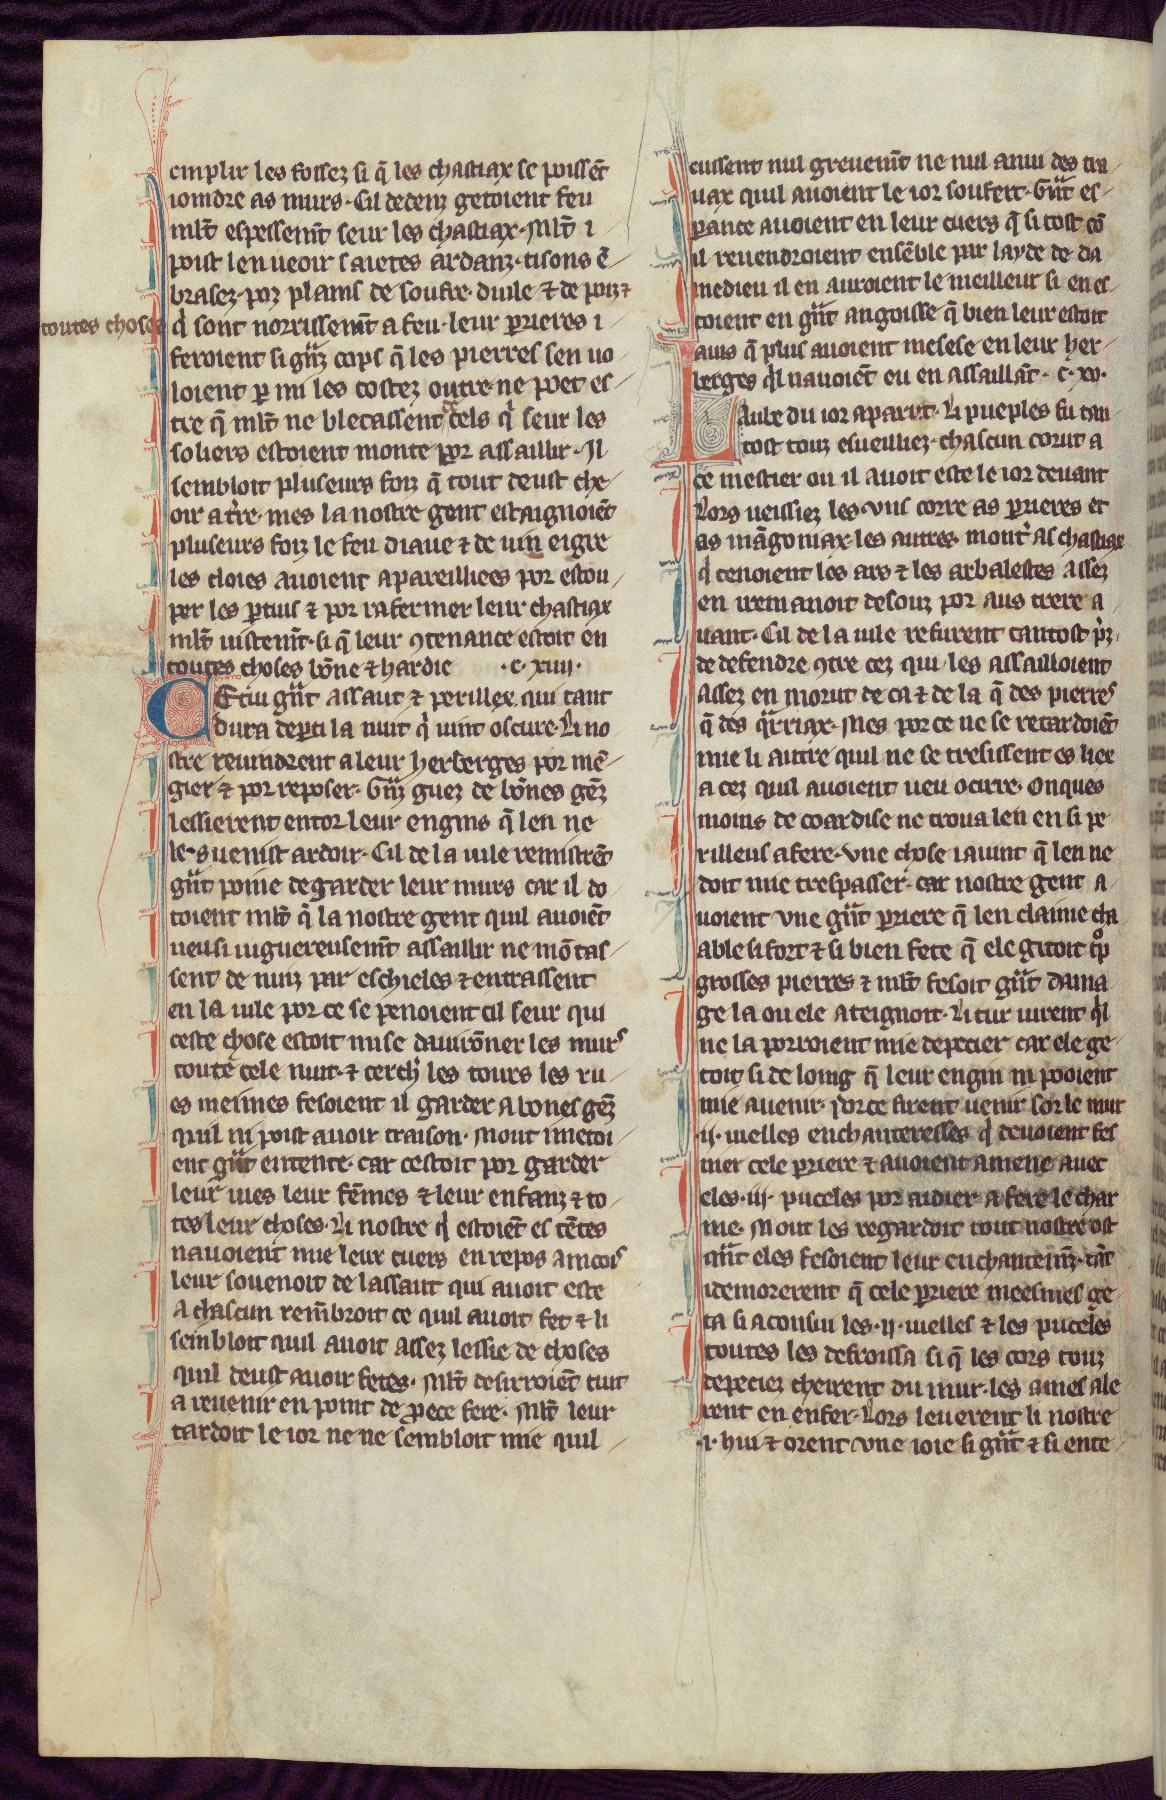 emplir les fossez si q̃ les chastiax se poissẽt
iomdre as murs. Cil dedenz getoient feu
ml̃t espessem̃t seur les chastiax. Ml̃t i
poist len ueoir saietes ardanz. tisons ẽ
brasez. poz plains de soufre. duile ⁊ de poiz ⁊
toutes choses
q̇ sont norrissem̃t a feu. leur prieres i
feroient si g̃nz cops q̃ les pierres sen uo
loient p mi les costez outre. ne poet es
tre q̃ ml̃t ne blecassent cels q̇ seur les
soliers estoient monte por assaillir. Il
sembloit pluseurs foiz q̃ tout deust che
oir a t̃re. mes la nostre gent estaignoiẽt
pluseurs foiz le feu diaue ⁊ de uin eigre
les cloies auoient apareilliees por estou
per les ptuis ⁊ por rafermer leur chastiax
ml̃t uistem̃t. si q̃ leur ꝯtenance estoit en
toutes choses bõne ⁊ hardie .c. xiiii.
Cetui g̃nt assaut ⁊ perillex. qui tant
dura depti la nuit q̇ uint oscure. Li no
stre reuindrent a leur herberges por mẽ
gier ⁊ por reposer. G̃nz guez de bõnes gẽz
lessierent entor leur engins q̃ len ne
les uenist ardoir. Cil de la uile remistrẽt
g̃nt poine de garder leur murs car il do
toient ml̃t q̃ la nostre gent quil auoiẽt
ueu si uiguereusem̃t assaillir ne mõtas
sent de nuiz par eschieles ⁊ entrassent
en la uile por ce se penoient cil seur qui
ceste chose estoit mise dauirõner les murs
toute cele nuit. ⁊ cerch̃ les tours les ru
es meimes fesoient il garder a bones gẽz
quil ni poist auoir traison. Mout i metoi
ent g̃nt entente. car cestoit por garder
leur uies leur fẽmes ⁊ leur enfanz ⁊ to
tes leur choses. Li nostre q̇ estoiẽt es tẽtes
nauoient mie leur cuers en repos aincois
leur souenoit de lassaut qui auoit este
A chascun rem̃broit ce quil auoit fet ⁊ li
sembloit quil auoit assez lessie de choses
quil deust auoir fetes. Ml̃t desirroiẽt tuit
a reuenir en point de prece fere. Ml̃t leur
tardoit le ior ne ne sembloit mie quil
eussent nul greuem̃t ne nul anui des tra
uax quil auoient le ior soufert. G̃nt es
pance auoient en leur cuers q̃ si tost cõ
il reuendroient ensẽble par layde de da
medieu il en auroient le meilleur si en es
toient en g̃nt angoisse q̃ bien leur estoit
auis q̃ plus auoient mesese en leur her
berges q̇l nauoiẽt eu en assaillãt. c. xv.
Laube du ior aparut. Li pueples fu tan
tost touz esueilliez. chascun corut a
ce mestier ou il auoit este le ior deuant
Lors ueissiez les uns corre as prieres et
as mãgoniax. les autres mont̃ as chastiax
q̇ tenoient les ars ⁊ les arbalestes assez
en iremanoit desouz por aus trere a
uant. Cil de la uile refurent tantost p̃z
de defendre ꝯtre cez qui les assailloient
Assez en morut de ca ⁊ de la q̃ des pierres
q̃ des q̃rriax. Mes por ce ne se retardoiẽt
mie li autre quil ne se tresissent es liex
a cez quil auoient ueu ocirre. Onques
moins de coardise ne troua len en si pe
rilleus afere. Vne chose i auint q̃ len ne
doit mie trespasser. car nostre gent a
uoient vne g̃nt priere q̃ len claime cha
able si fort ⁊ si bien fete q̃ ele gitoit trop
grosses pierres ⁊ ml̃t fesoit g̃nt dama
ge la ou ele ateignoit. Li tur uirent q̇l
ne la porroient mie depecier car ele ge
toit si de loing q̃ leur engin ni pooient
mie auenir. Por ce firent uenir sor le mur
.ij. uielles enchanteresses q̇ deuoient fes
mer cele priere ⁊ auoient amene auec
eles .iij. puceles por aidier a fere le char
me. Mout les regardoit tout nostre ost
q̃nt eles fesoient leur enchantem̃z. tãt
i demorerent q̃ cele priere meesmes ge
ta si aconsui les .ij. uielles ⁊ les puceles
toutes les defroissa si q̃ les cors touz
depeciez cheirent du mur. les ames ale
rent en enfer. Lors leuerent li nostre
.i. hui ⁊ orent vne ioie si g̃nt ⁊ si ente